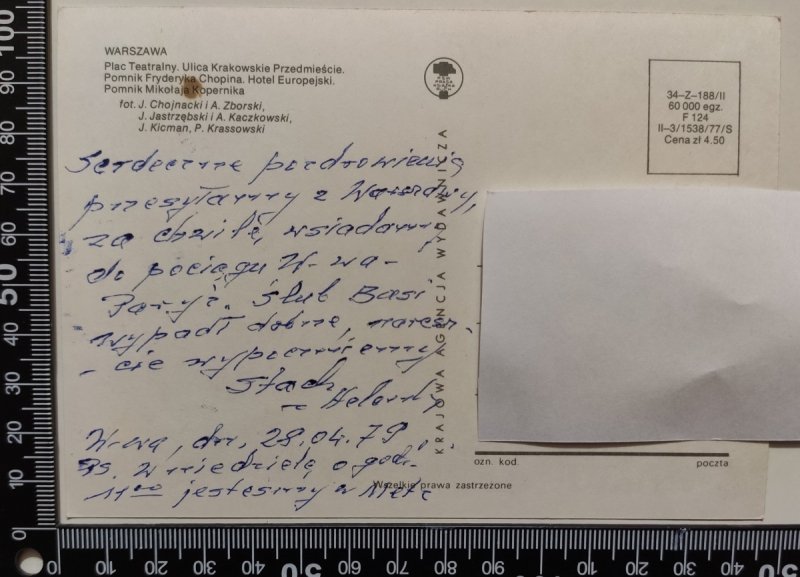 WARSZAWA
Plac Teatralny. Ulica Krakowskie Przedmieście.
Pomnik Fryderyka Chopina. Hotel Europejski.
Pomnik Mikołaja Kopernika
fot. J. Chojnacki i A. Zborski,
J. Jastrzębski i A. Kaczkowski,
J. Kicman, P. Krassowski
34-Z-188/II
60 000 egz.
F 124
II-3/1538/77/S
Cena zł 4.50
Serdeczne pozdrowienia
przesyłamy z Warszawy,
za chwilę, wsiadamy
do pociągu W-wa-
Paryż. Ślub Basi
wypadł dobrze, naresz-
- cie wypoczniemy
Stach
W-wa, dn. 28.04.79
PS. W niedzielę o godz.
11⁰⁰ jesteśmy w Metz
KRAJOWA AGENCJA WYDAWNICZA
ozn. kod.
poczta
Wszelkie prawa zastrzeżone
100
90
80
70
60
50
40
30
20
10
0
0
10
20
30
40
50
60
70
80
90
10
20
30
40
50